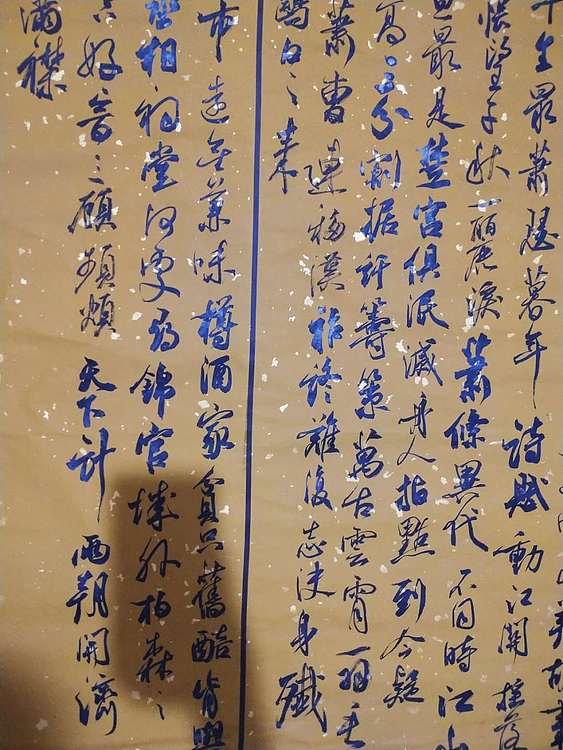 生最蕭瑟暮年詩賦動江關搖落
悵望千秋一灑淚蕭條異代不同時江山
最是楚宮俱泯滅舟人指點到今疑
高三分割據紆籌策萬古雲霄一羽毛
蕭曹運移漢祚終難復志決身殲
市遠無兼味樽酒家貧只舊醅肯與
丞相祠堂何處尋錦官城外柏森森
空好音三顧頻煩天下計兩朝開濟
滿襟